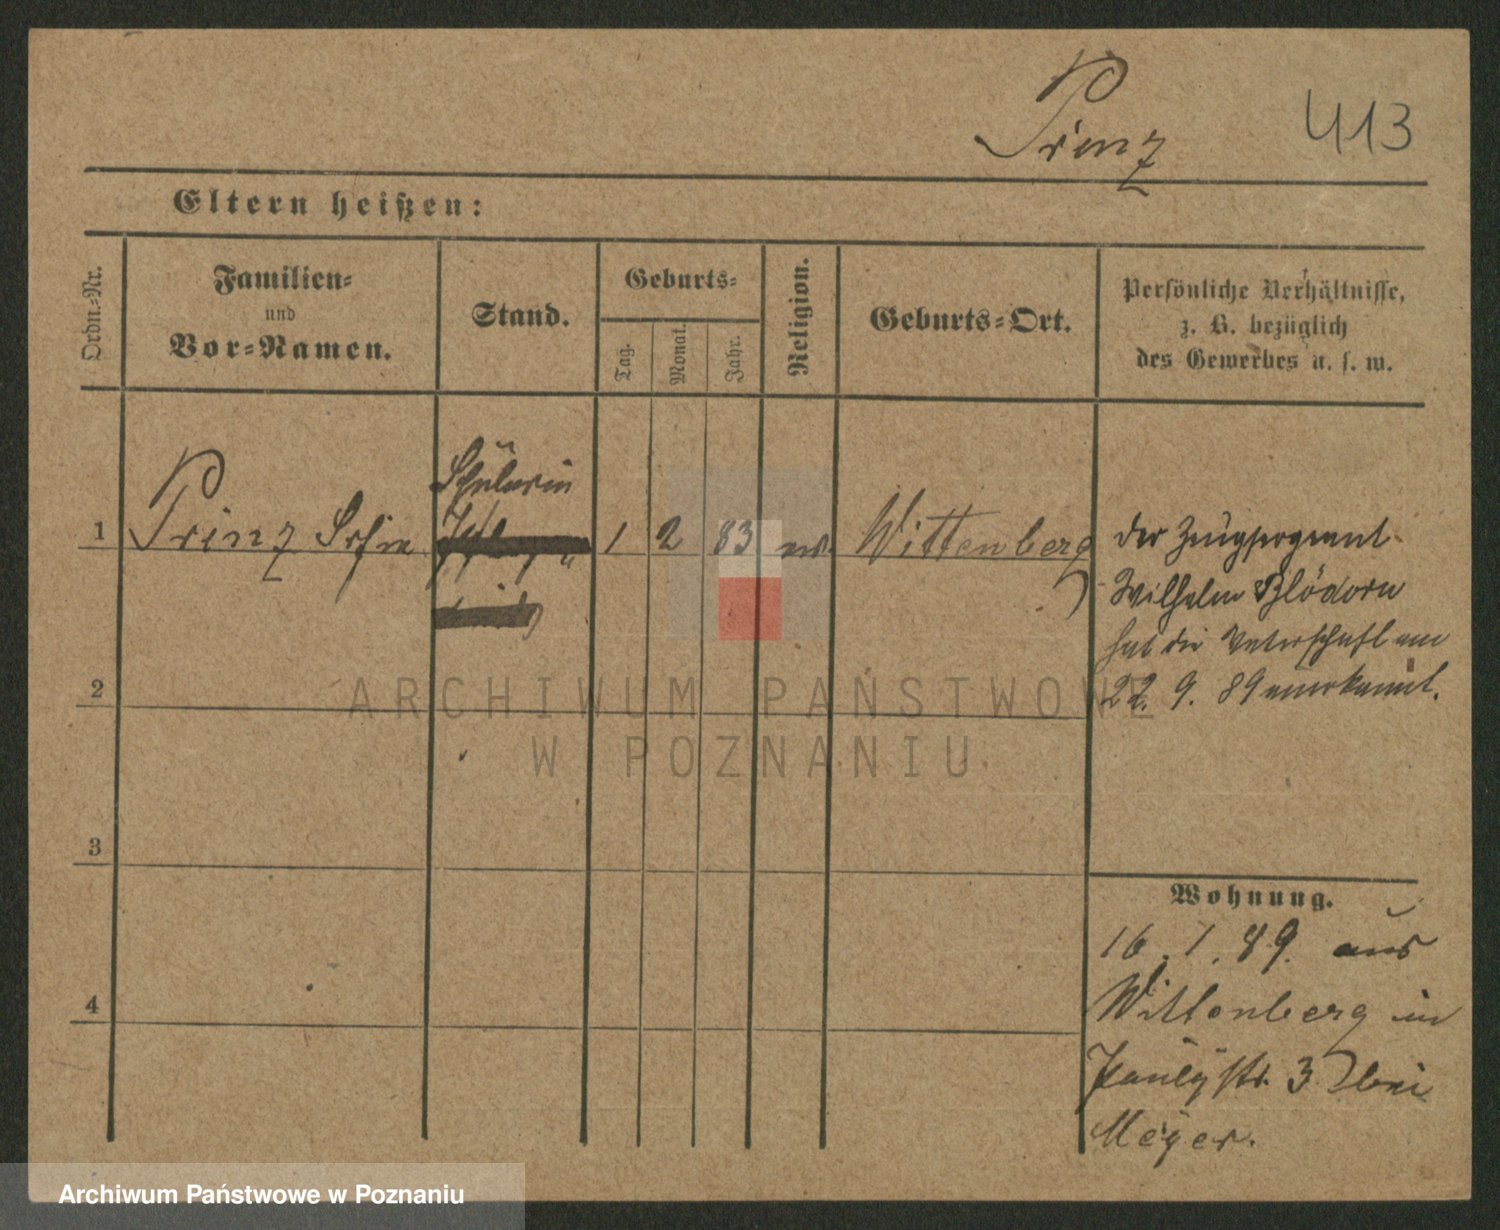 Prinz 413
Eltern heißen:
Ordn.=Nr.
Familien=
und
Vor=Namen.
Stand.
Geburts=
Tag.
Monat.
Jahr.
Religion.
Geburts=Ort.
Persönliche Verhältnisse,
z. B. bezüglich
des Gewerbes u. s. w.
Schülerin
1 Prinz 1 2 83 ev. Wittenberg
der Zeugsergeant
Wilhelm Blödorn
hat die Vaterschaft am
22. 9. 89 anerkannt.
2
3
4
Wohnung.
16. 1. 89. aus
Wittenberg in
3 bei
Meyer.
ARCHIWUM PAŃSTWOWE
W POZNANIU
Archiwum Państwowe w Poznaniu